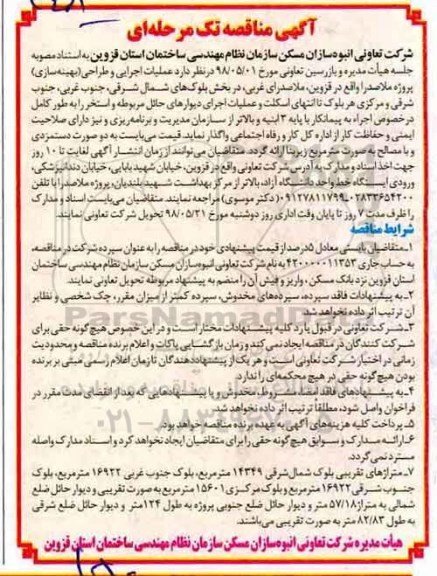 آگهی مناقصه تک مرحله‌ای
شرکت تعاونی انبوه‌سازان مسکن سازمان نظام مهندسی ساختمان استان قزوین به استناد مصوبه
جلسه هیأت مدیره و بازرسین تعاونی مورخ ۹۸/۰۵/۰۱ در نظر دارد عملیات اجرایی و طراحی (بهینه‌سازی)
پروژه ملاصدرا واقع در قزوین، ملاصدرای غربی، در بخش بلوک‌های شمال شرقی، جنوب غربی، جنوب
شرقی و مرکزی هر بلوک تا انتهای اسکلت و عملیات اجرای دیوارهای حائل مربوطه و استخر را به طور کامل
در خصوص اجراء به پیمانکار با پایه ۳ ابنیه و بالاتر از سازمان مدیریت و برنامه‌ریزی و نیز دارای صلاحیت
ایمنی و حفاظت کار از اداره کل کار و رفاه اجتماعی واگذار نماید. قیمت می‌بایست به دو صورت دستمزدی
و با مصالح به صورت مترمربع زیربنا ارائه گردد. متقاضیان می‌توانند از زمان انتشار آگهی لغایت تا ۱۰ روز
جهت اخذ اسناد و مدارک به آدرس شرکت تعاونی واقع در قزوین، خیابان شهید بابایی، خیابان دندانپزشکی،
ورودی ایستگاه خط واحد دانشگاه آزاد، بالاتر از مرکز بهداشت شهید بلندیان، پروژه ملاصدرا با تلفن
۰۲۸۳۳۶۵۴۲۰۰-۰۹۱۲۷۸۱۱۷۹۹ (دکتر موسوی) مراجعه نمایند. متقاضیان می‌بایست اسناد و مدارک
را ظرف مدت ۷ روز تا پایان وقت اداری روز دوشنبه مورخ ۹۸/۰۵/۲۱ تحویل شرکت تعاونی نمایند.
شرایط مناقصه
۱ـ متقاضیان بایستی معادل ۵ درصد از قیمت پیشنهادی خود در مناقصه را به عنوان سپرده شرکت در مناقصه،
به حساب جاری ۴۲۰۰۰۰۰۱۱۳۵۳ به نام شرکت تعاونی انبوه‌سازان مسکن سازمان نظام مهندسی ساختمان
استان قزوین نزد بانک مسکن، واریز و فیش آن را منضم به پیشنهاد مربوطه تحویل تعاونی نمایند.
۲ـ به پیشنهادات فاقد سپرده، سپرده‌های مخدوش، سپرده کمتر از میزان مقرر، چک شخصی و نظایر
آن ترتیب اثر داده نخواهد شد.
۳ـ شرکت تعاونی در قبول یا رد کلیه پیشنهادات مختار است و در این خصوص هیچ‌گونه حقی برای
شرکت کنندگان در مناقصه ایجاد نمی‌کند و زمان بازگشایی پاکات و اعلام برنده مناقصه و محدودیت
زمانی در اختیار شرکت تعاونی است و هر یک از پیشنهاددهندگان تا زمان اعلام رسمی مبنی بر برنده
بودن هیچ‌گونه حقی در هیچ محکمه‌ای را ندارد.
۴ـ به پیشنهادهای فاقد امضاء، مشروط، مخدوش و یا پیشنهادهایی که بعد از انقضای مدت مقرر در
فراخوان واصل شود، مطلقاً ترتیب اثر داده نخواهد شد.
۵ـ پرداخت کلیه هزینه‌های آگهی به عهده برنده مناقصه خواهد بود.
۶ـ ارائه مدارک و سوابق هیچ‌گونه حقی را برای متقاضیان ایجاد نخواهد کرد و اسناد مدارک واصله
مسترد نمی‌گردد.
۷ـ متراژهای تقریبی بلوک شمال‌شرقی ۱۴۳۴۹ مترمربع، بلوک جنوب غربی ۱۶۹۲۲ مترمربع، بلوک
جنوب شرقی ۱۶۹۲۲ مترمربع و بلوک مرکزی ۱۵۶۰۱ مترمربع به صورت تقریبی و دیوار حائل ضلع
شمالی به متراژ ۵۷/۱۸ متر و دیوار حائل ضلع جنوبی پروژه به طول ۱۲۴ متر و دیوار حائل ضلع شرقی
به طول ۸۲/۸۳ متر به صورت تقریبی می‌باشند.
هیأت مدیره شرکت تعاونی انبوه‌سازان مسکن سازمان نظام مهندسی ساختمان استان قزوین